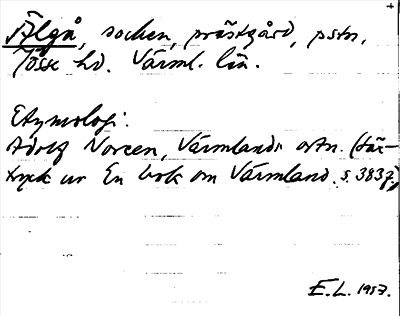 Älgå, socken, prästgård, pstn,
Jösse hd. Värml. län.
Etymologi.
Adolf Noreen, Värmlands ortn. (Sär-
tryck ur En bok om Värmland. s. 383 f.)
E.L. 1957.